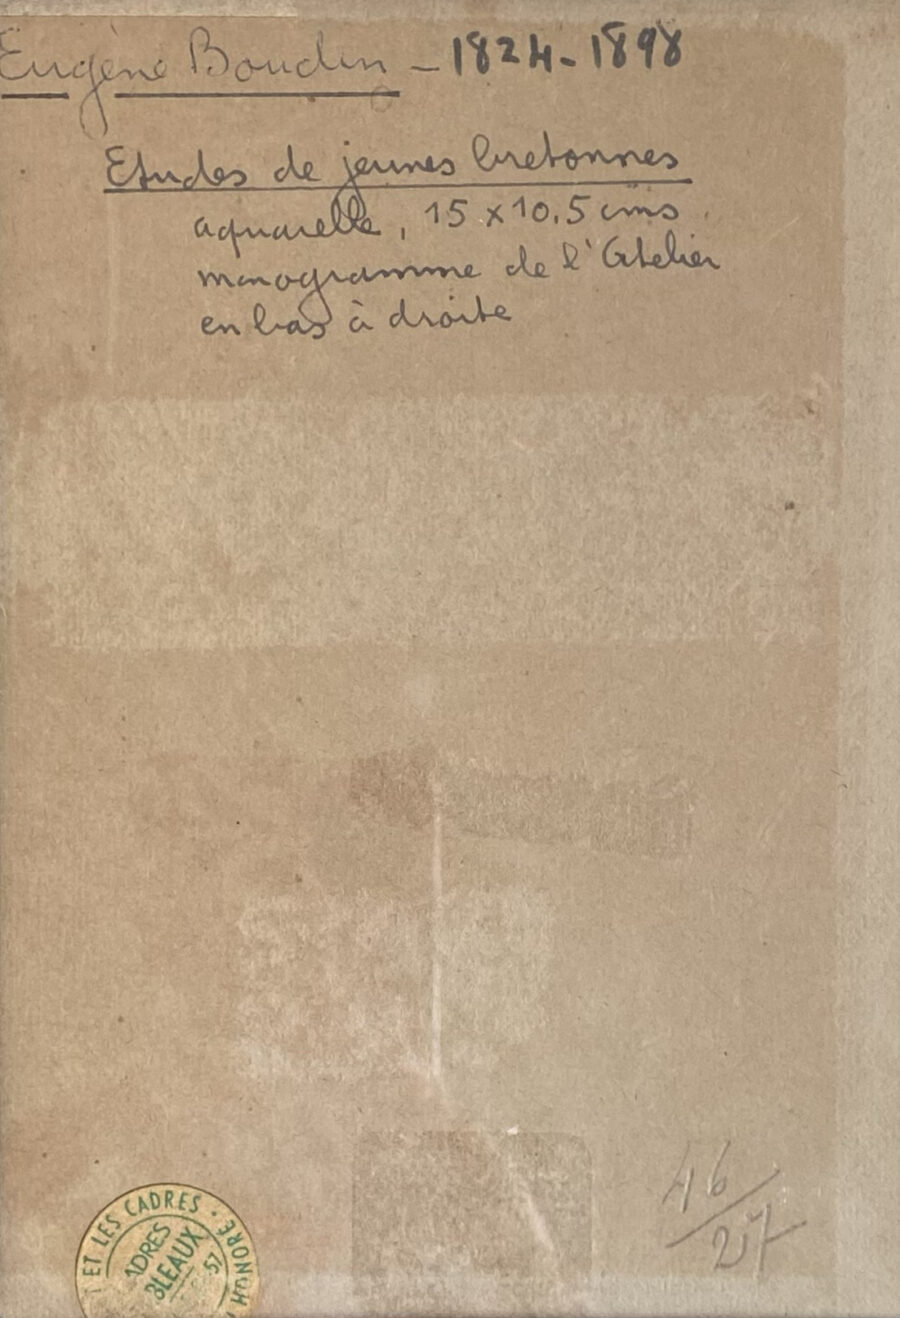 Eugène Boudin – 1824-1898
Etudes de jeunes bretonnes
aquarelle, 15 x 10,5 cms.
monogramme de l'Atelier
en bas à droite
46/27
ET LES CADRES • HONORÉ
ADRÈS
BLEAUX
57